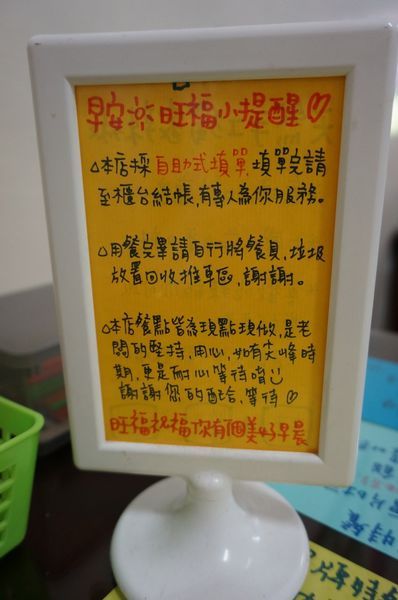 早安ㄠ旺福小提醒♡
△本店採自助式填單,填單完請
至櫃台結帳,有專人為你服務。
△用餐完畢請自行將餐具,垃圾
放置回收推專區,謝謝。
△本店餐點皆為現點現做,是老
闆的堅持,用心,如有尖峰時
期,更是耐心等待唷
謝謝您的配合,等待♡
旺福祝福你有個美好早晨